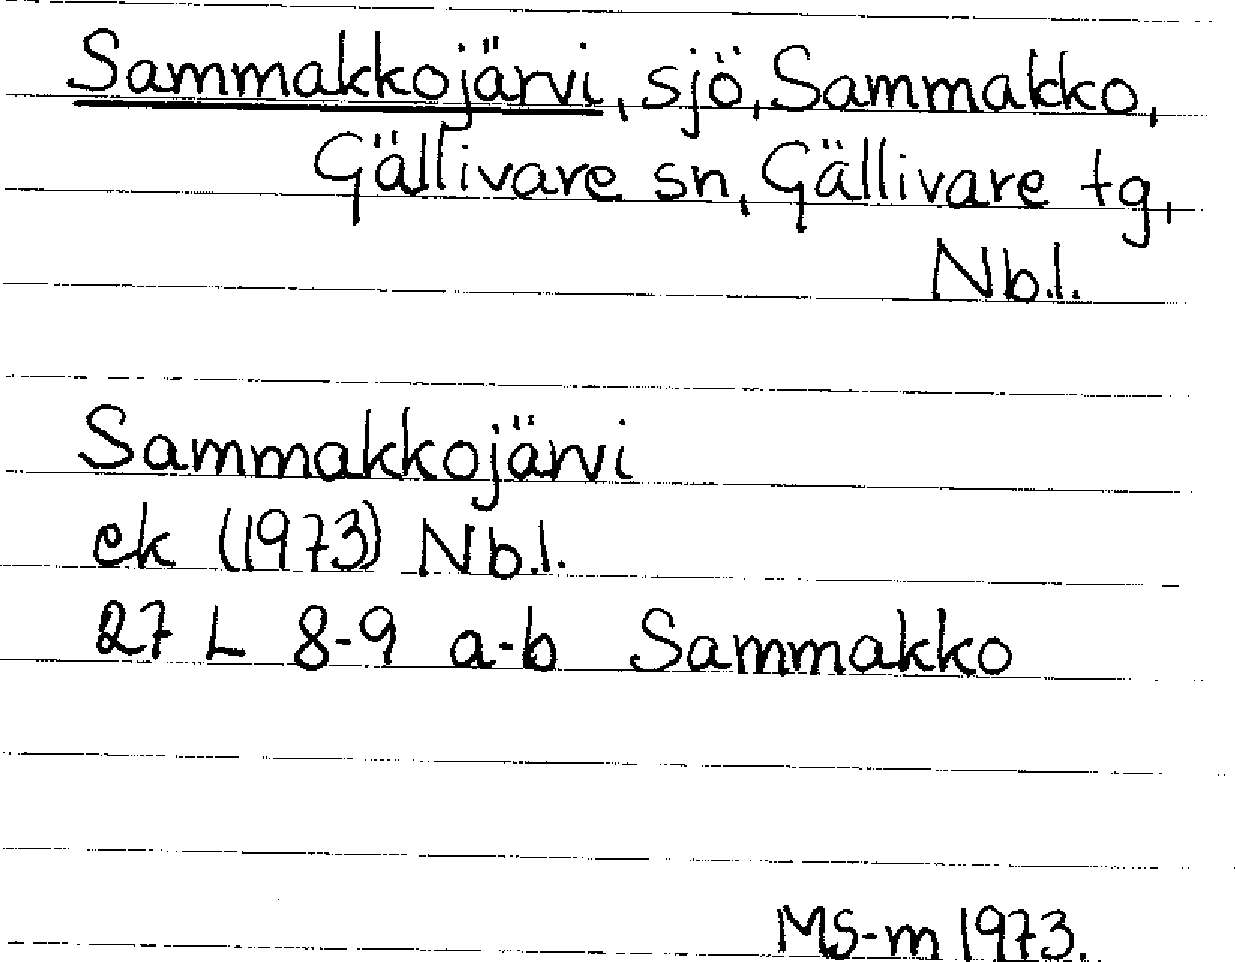 Sammakkojärvi, sjö, Sammakko,
Gällivare sn, Gällivare tg,
Nb.l.
Sammakkojärvi
ek (1973) Nb.l.
27 L 8-9 a-b Sammakko
MS-m 1973.